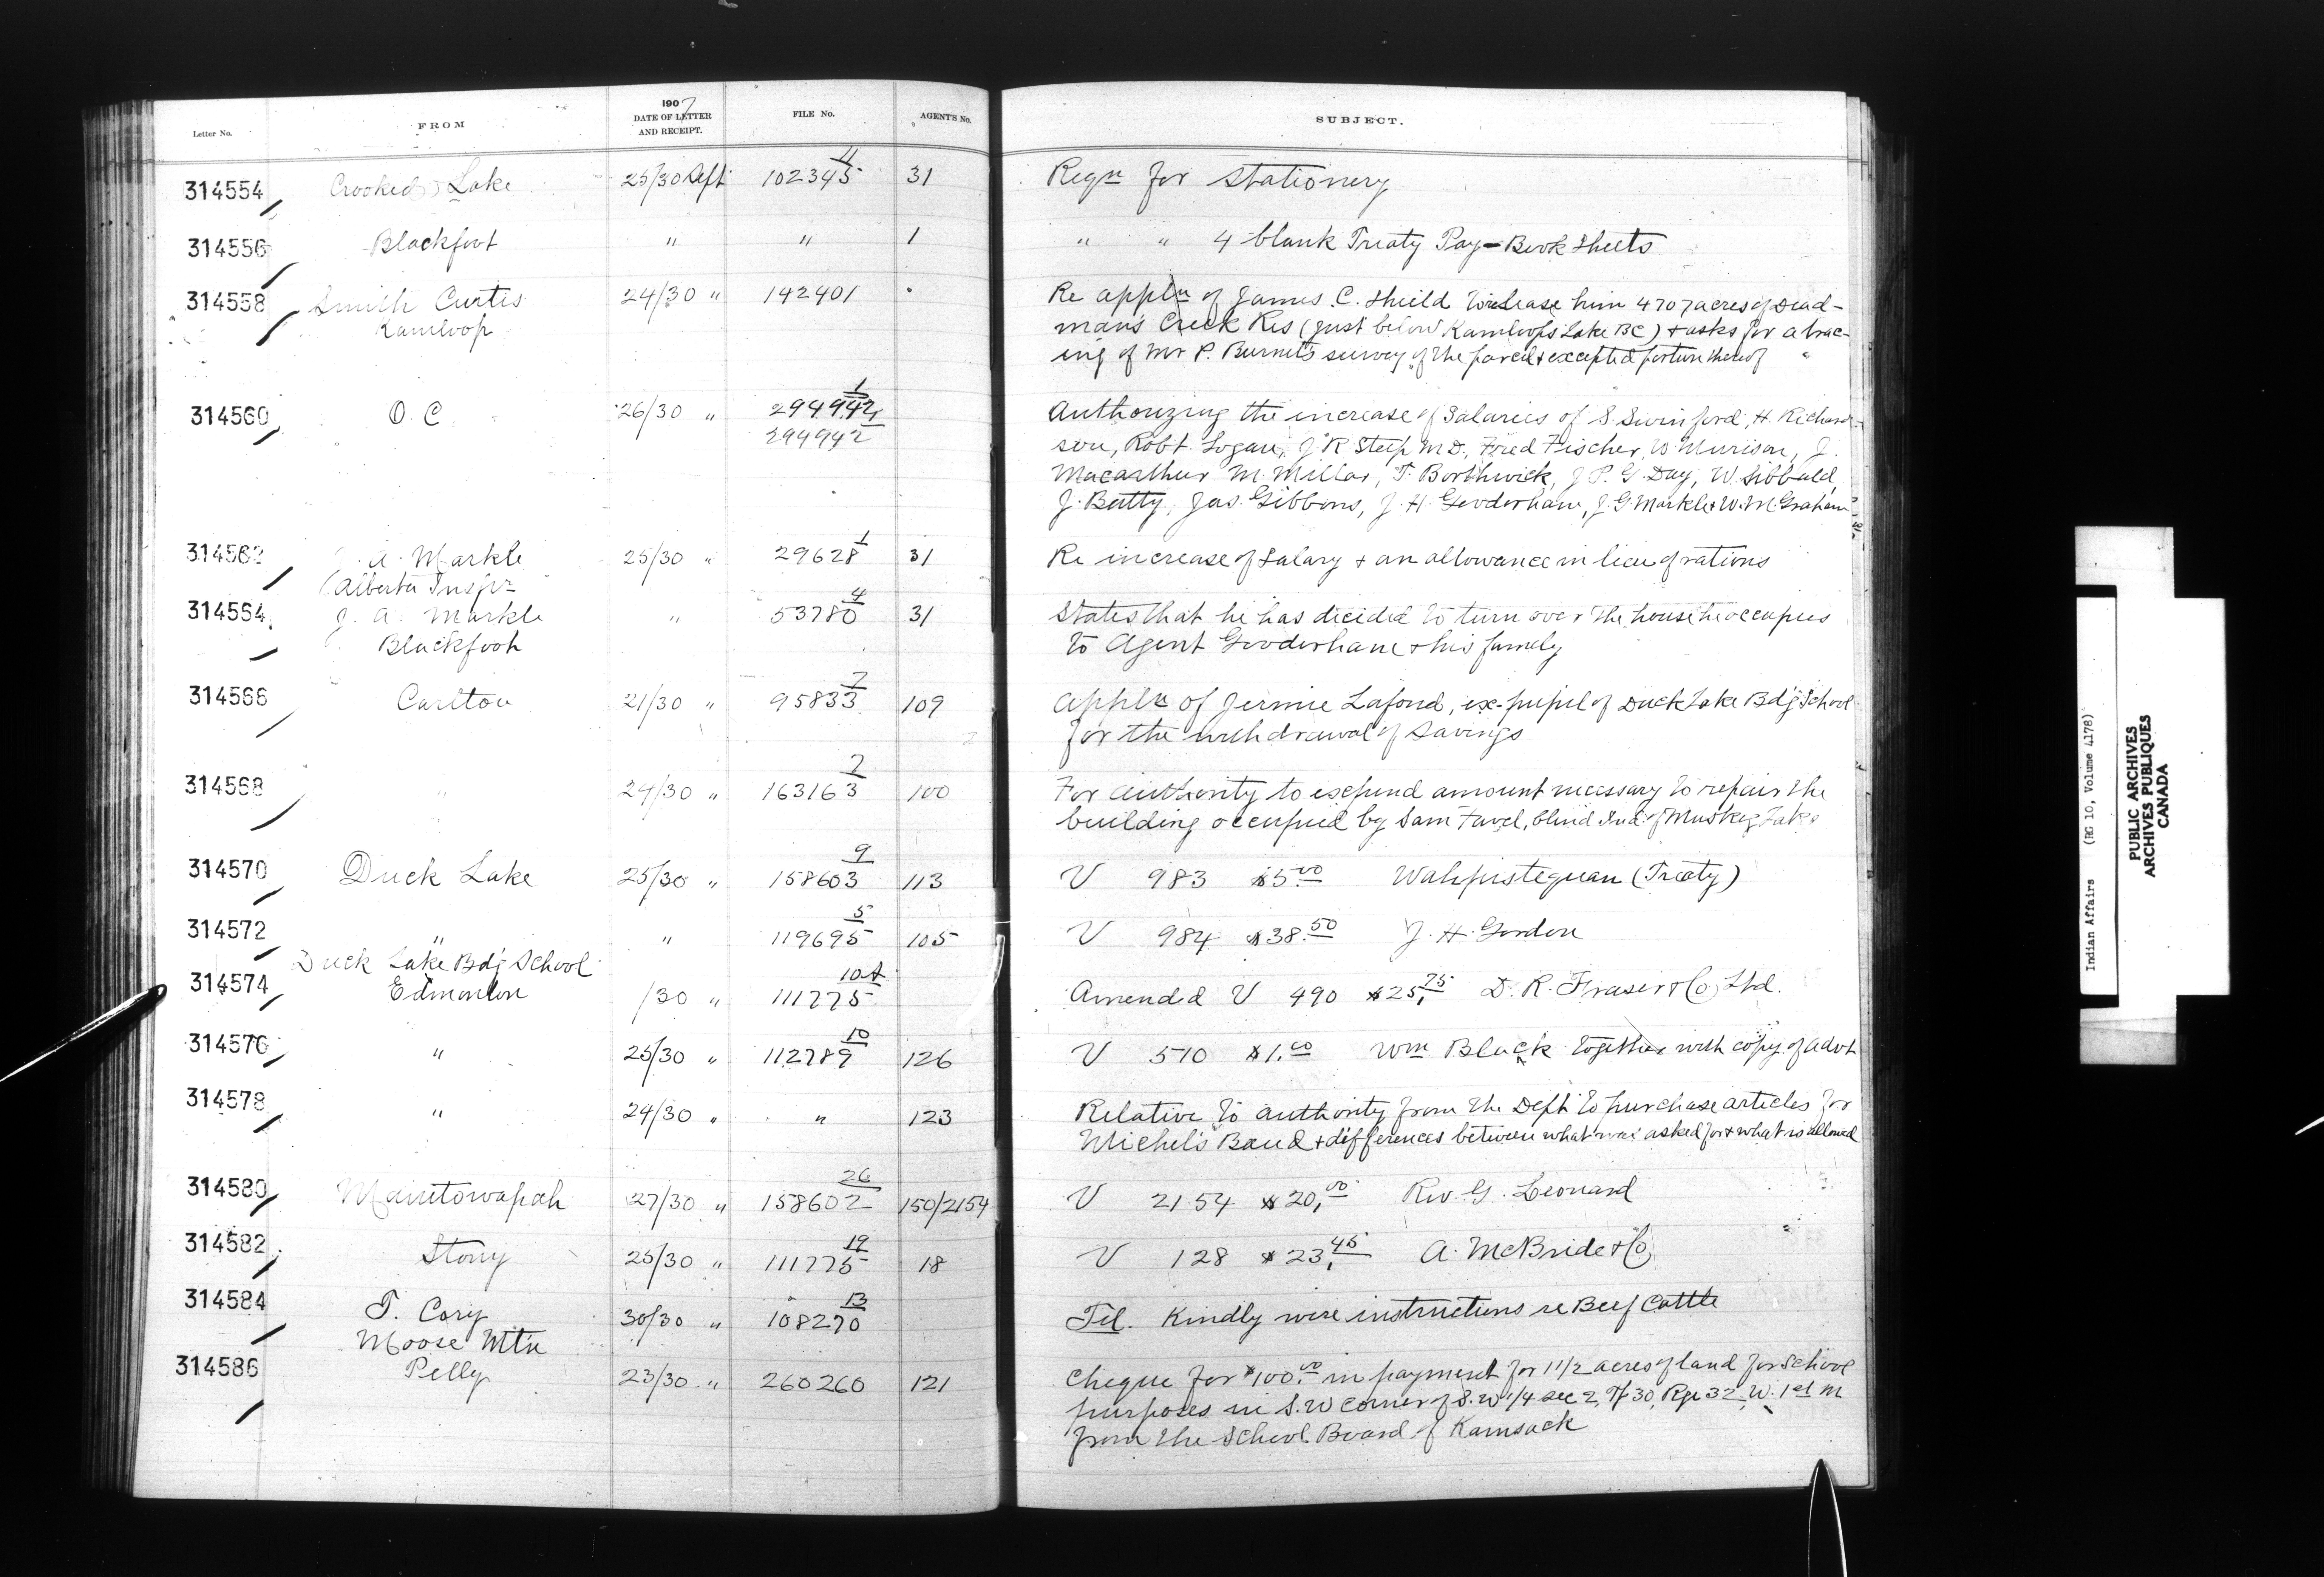 Letter No. FROM 1907 DATE OF LETTER AND RECEIPT. FILE No. AGENT'S No. SUBJECT.
314554 Crooked Lake 25/30 Sept 102345 11 31 Reqn for Stationery
314556 Blackfoot " " 1 " " 4 blank Treaty Pay-Book Sheets
314558 Smith Curtis 24/30 " 142401 Re appln of James C. Shield to release him 4707 acres of Dead-
Kamloop man's Creek Res (just below Kamloops Lake BC) + asks for a trac-
ing of Mr P. Burnet's survey of the parcel + excepted portion thereof
314560 O. C. 26/30 " 294942 1 Authorizing the increase of Salaries of S. Swinford, H. Richard-
294942 son, Robt. Logan, J. R. Steep M.D., Fred Fischer, W. Murison, J.
Macarthur M. Millar, T. Borthwick, J. P. G. Day, W. Sibbald,
J. Batty, Jas. Gibbons, J. H. Gooderham, J. G. Markle + W. M. Graham
314562 A. Markle 25/30 " 29628 1 31 Re increase of Salary + an allowance in lieu of rations
Alberta Inspr
314564 J. A. Markle " 53780 4 31 States that he has decided to turn over the house he occupies
Blackfoot to Agent Gooderham + his family
314566 Carlton 21/30 " 95833 7 109 Appln of Jermie Lafond, ex-pupil of Duck Lake Bdg School
for the withdrawal of Savings
314568 " 24/30 " 163163 7 100 For authority to expend amount necessary to repair the
building occupied by Sam Favel, blind Ind. of Muskeg Lake
314570 Duck Lake 25/30 " 158603 9 113 V 983 $5.00 Wahpistequan (Treaty)
314572 " " 119695 5 105 V 984 $38.50 J. H. Gordon
Duck Lake Bdg School
314574 Edmonton /30 " 111775 10A Amended V 490 $25.75 D. R. Fraser + Co Ltd.
314576 " 25/30 " 112789 10 126 V 510 $1.00 Wm Black together with copy of advt
314578 " 24/30 " " 123 Relative to authority from the Dept to purchase articles for
Michel's Band + differences between what was asked for + what is allowed
314580 Manitowapah 27/30 " 158602 26 150/2154 V 2154 $20.00 Rev. G. Leonard
314582 Stony 25/30 " 111775 19 18 V 128 $23.45 A. McBride + Co
314584 T. Cory 30/30 " 108270 13 Tel. Kindly wire instructions re Beef Cattle
Moose Mtn
314586 Pelly 23/30 " 260260 121 Cheque for $100.00 in payment for 1 1/2 acres of land for School
purposes in S.W corner of S.W 1/4 sec 2, Tp 30, Rge 32, W. 1st M
from the School Board of Kamsack
Indian Affairs (RG 10, Volume 4178)
PUBLIC ARCHIVES
ARCHIVES PUBLIQUES
CANADA